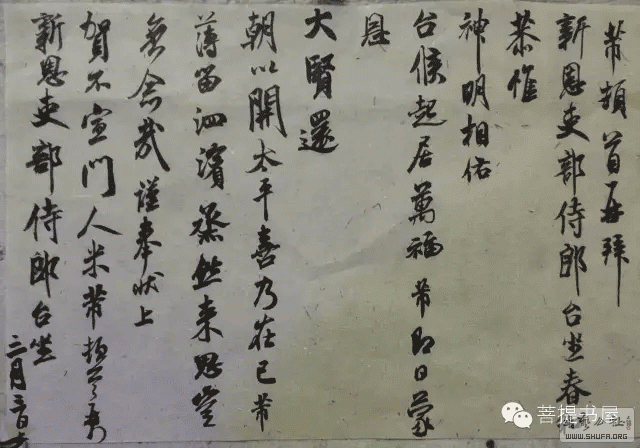 芾頓首再拜
新恩吏部侍郎台坐春
恭惟
神明相佑
台候起居萬福芾即日蒙
恩
大賢還
朝以開太平喜乃在己芾
薄留泗濱蒸然来思豈
無念哉謹奉状上
賀不宣門人米芾頓首
新恩吏部侍郎台坐
三月
菩提书屋
WWW.SHUFA.ORG